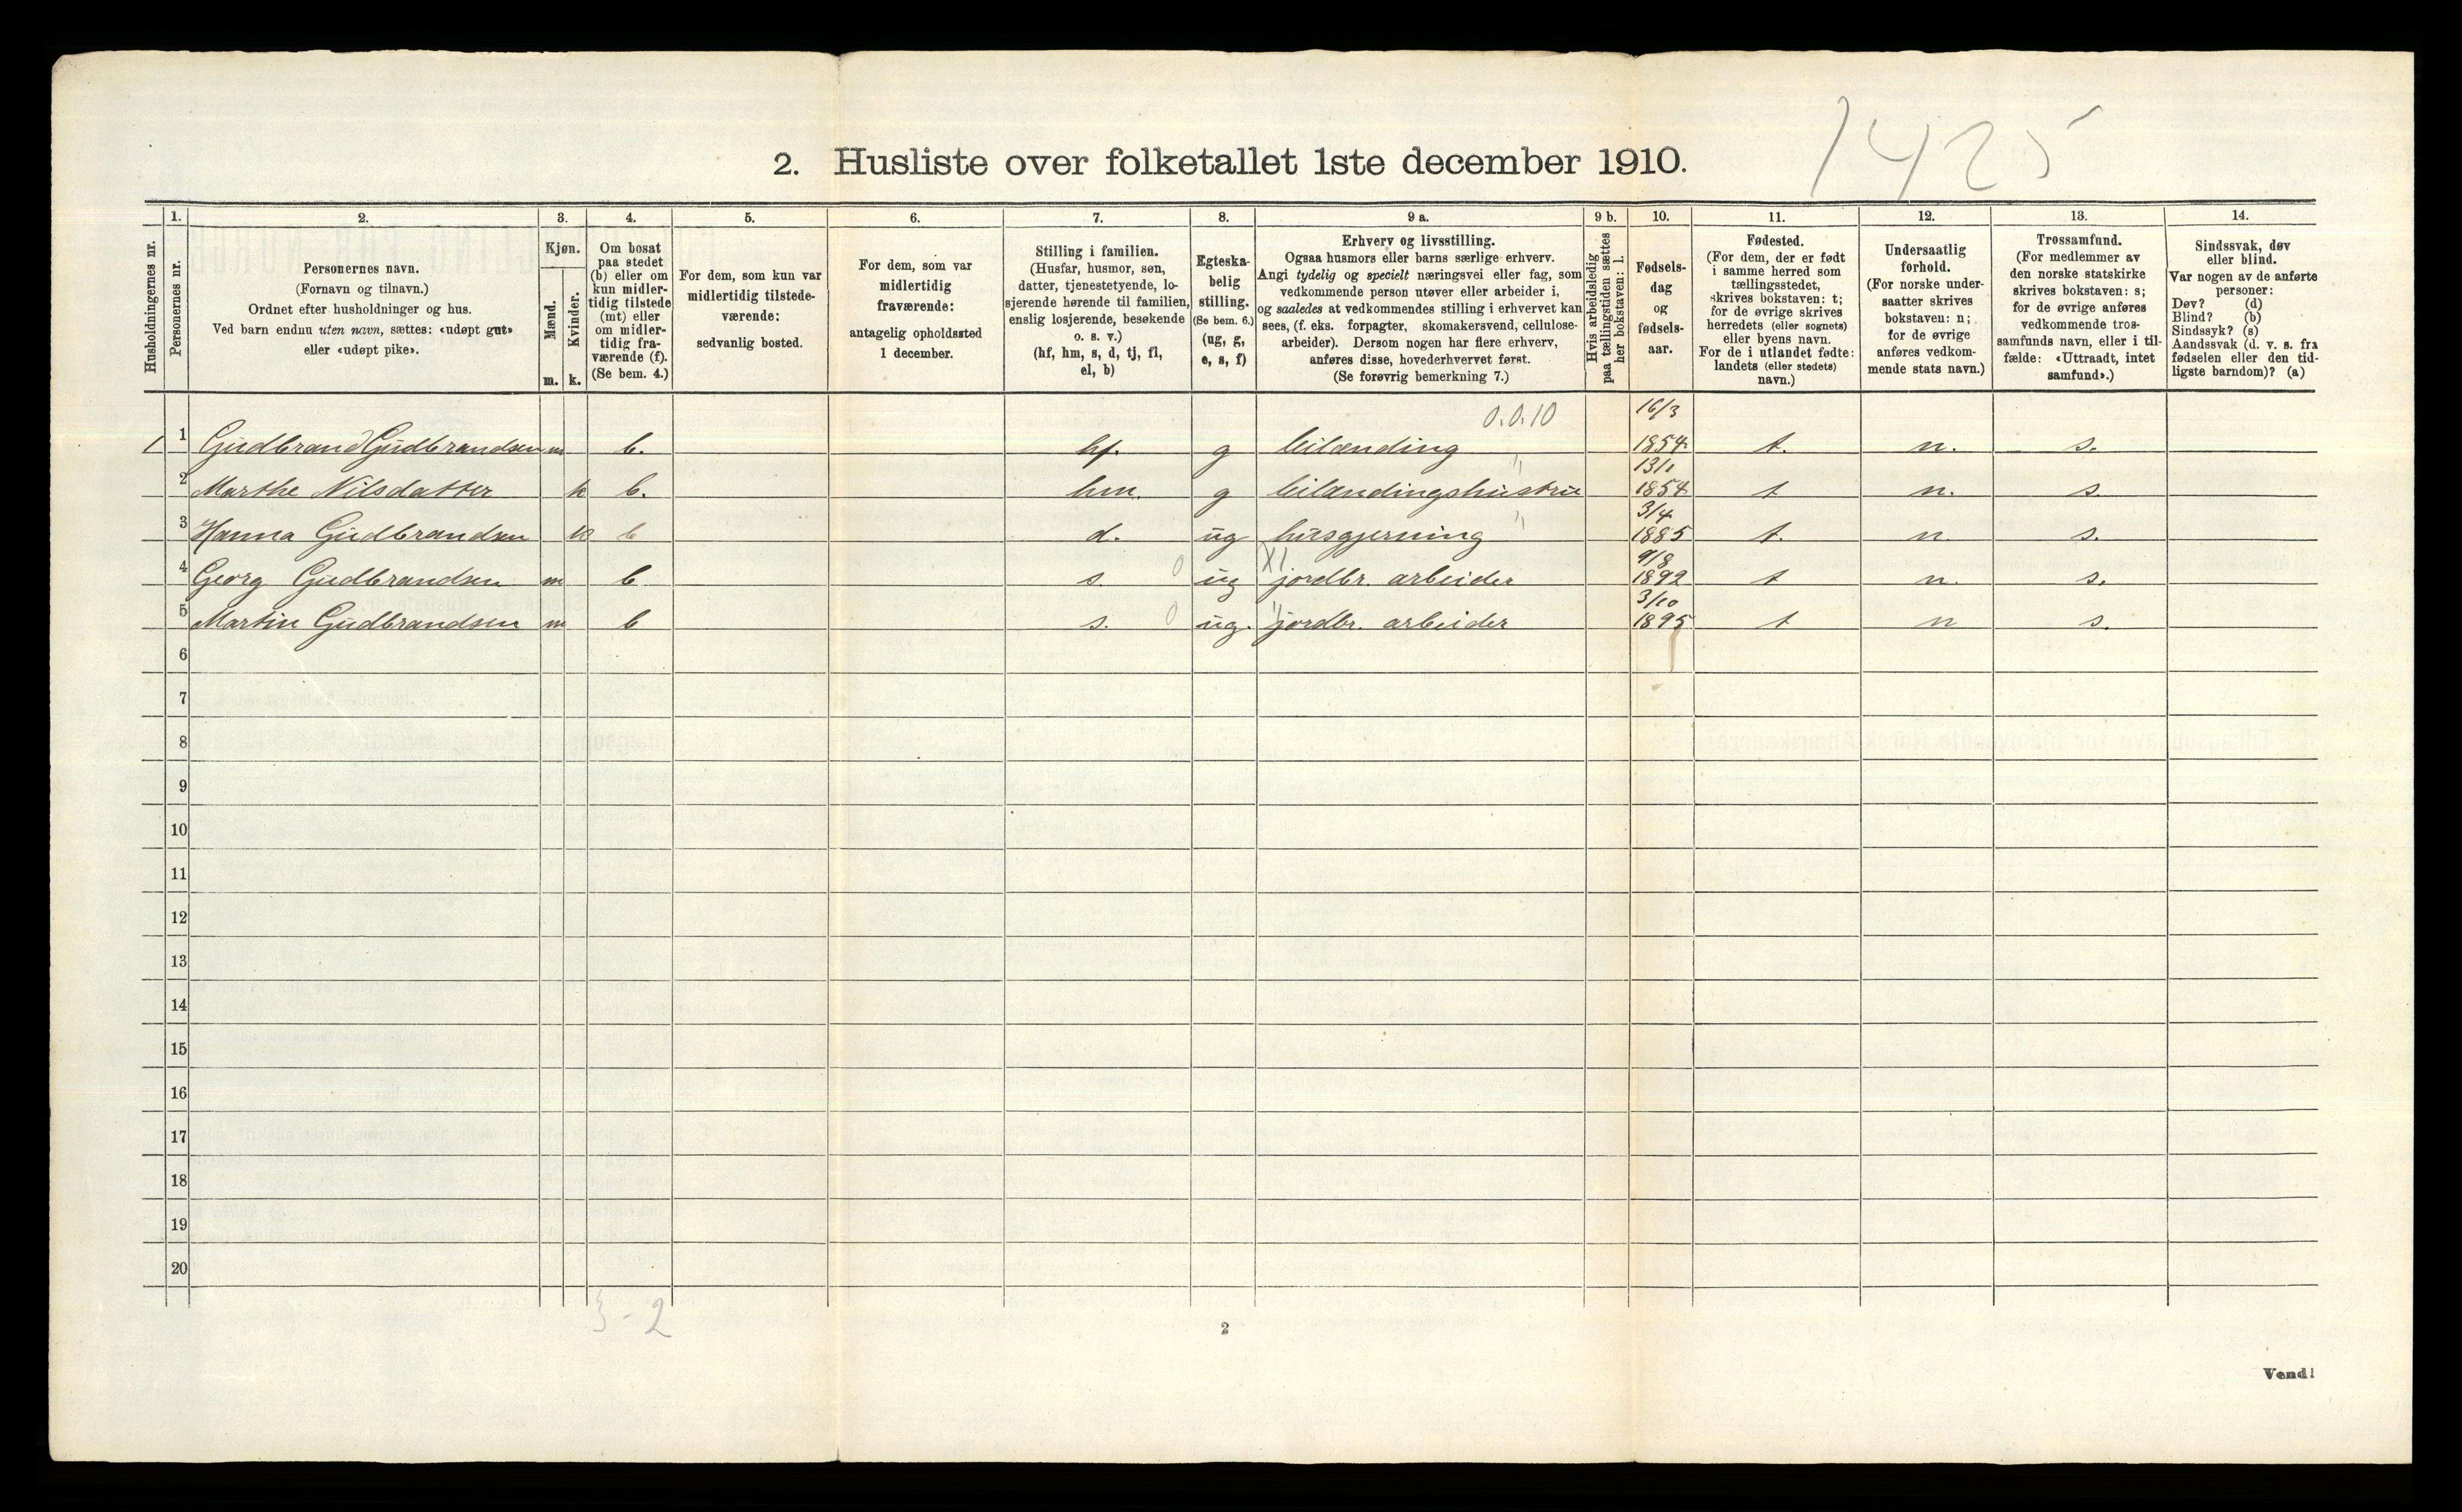 1425
2. Husliste over folketallet 1ste december 1910.
1. 2. 3. 4. 5. 6. 7. 8. 9 a. 9 b. 10. 11. 12. 13. 14.
Husholdningernes nr.
Personernes nr.
Personernes navn.
(Fornavn og tilnavn.)
Ordnet efter husholdninger og hus.
Ved barn endnu uten navn, sættes: «udøpt gut»
eller «udøpt pike».
Kjøn.
Mænd.
Kvinder.
m. k.
Om bosat
paa stedet
(b) eller om
kun midler-
tidig tilstede
(mt) eller
om midler-
tidig fra-
værende (f).
(Se bem. 4.)
For dem, som kun var
midlertidig tilstede-
værende:
sedvanlig bosted.
For dem, som var
midlertidig
fraværende:
antagelig opholdssted
1 december.
Stilling i familien.
(Husfar, husmor, søn,
datter, tjenestetyende, lo-
sjerende hørende til familien,
enslig losjerende, besøkende
o. s. v.)
(hf, hm, s, d, tj, fl,
el, b)
Egteska-
belig
stilling.
(Se bem. 6.)
(ug, g,
e, s, f)
Erhverv og livsstilling.
Ogsaa husmors eller barns særlige erhverv.
Angi tydelig og specielt næringsvei eller fag, som
vedkommende person utøver eller arbeider i,
og saaledes at vedkommendes stilling i erhvervet kan
sees, (f. eks. forpagter, skomakersvend, cellulose-
arbeider). Dersom nogen har flere erhverv,
anføres disse, hovederhvervet først.
(Se forøvrig bemerkning 7.)
Hvis arbeidsledig
paa tællingstiden sættes
her bokstaven: l.
Fødsels-
dag
og
fødsels-
aar.
Fødested.
(For dem, der er født
i samme herred som
tællingsstedet,
skrives bokstaven: t;
for de øvrige skrives
herredets (eller sognets)
eller byens navn.
For de i utlandet fødte:
landets (eller stedets)
navn.)
Undersaatlig
forhold.
(For norske under-
saatter skrives
bokstaven: n;
for de øvrige
anføres vedkom-
mende stats navn.)
Trossamfund.
(For medlemmer av
den norske statskirke
skrives bokstaven: s;
for de øvrige anføres
vedkommende tros-
samfunds navn, eller i til-
fælde: «Uttraadt, intet
samfund».)
Sindssvak, døv
eller blind.
Var nogen av de anførte
personer:
Døv? (d)
Blind? (b)
Sindssyk? (s)
Aandssvak (d. v. s. fra
fødselen eller den tid-
ligste barndom)? (a)
0.0.10 16/3
1 1 Gudbrand Gudbrandsen m b. hf. g leilænding 1854 t. n. s.
" 13/1
2 Marthe Nilsdatter k b. hm. g leilændingshustru 1854 t n. s.
" 3/4
3 Hanna Gudbrandsen k b d. ug husgjerning 1885 t. n. s.
XI 9/8
4 Georg Gudbrandsen m b s. 0 ug jordbr. arbeider 1892 t n. s.
" 3/10
5 Martin Gudbrandsen m b s. 0 ug. jordbr. arbeider 1895 t n s.
6
7
8
9
10
11
12
13
14
15
16
17
18
19
20
3-2
2
Vend!